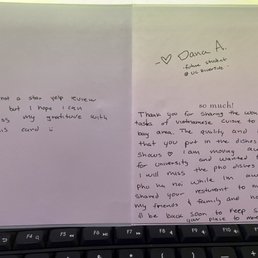 not a star yelp review
but I hope I can
my gratitude with
card
-♡ Dana A.
future student
@ UC Riverside!
so much!
Thank you for sharing the
tastes of vietnamese cuisine to
bay area. The quality and
that you put in the dishes
shows ♡ I am moving
for university and wanted
I will miss the pho dishes
pho ha noi while I'm
shared your restaurant to
my friends & family and
I'll be back soon to keep
your place to
F4
F5
F6
F7
F8
F9